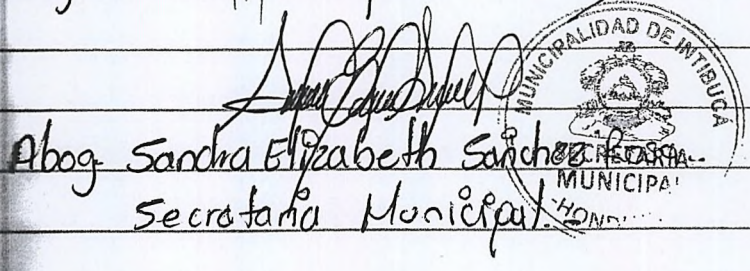 Abog. Sandra Elizabeth Sánchez
Secretaria Municipal.
MUNICIPALIDAD DE INTIBUCÁ
SECRETARIA
MUNICIPAL